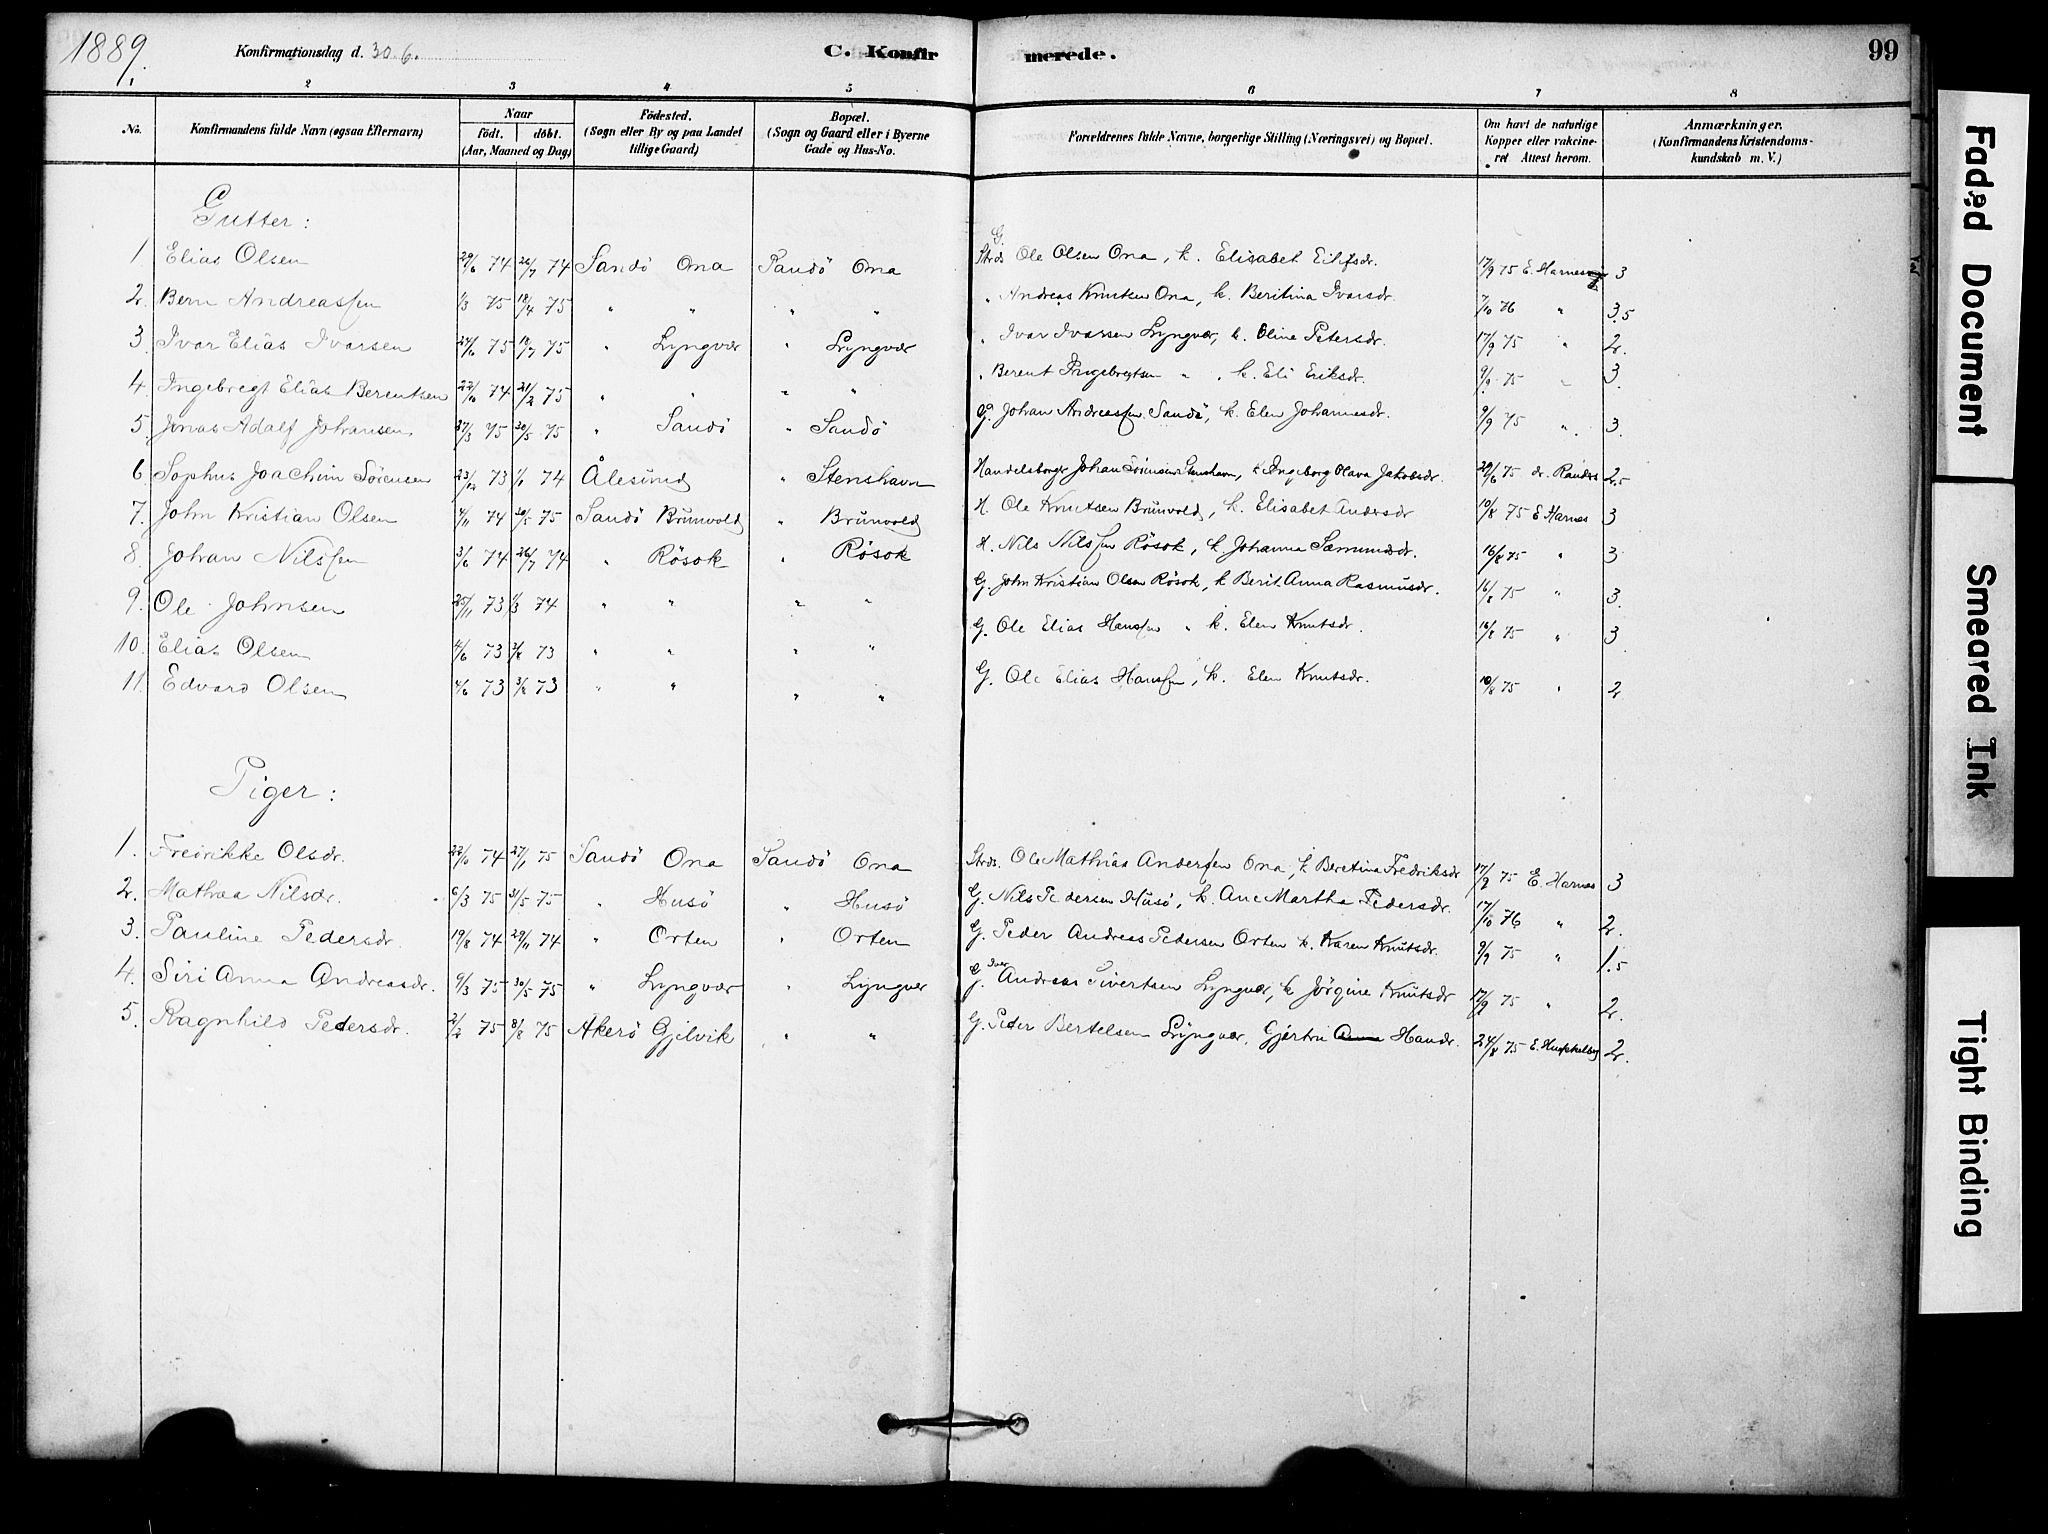 1889. Konfirmationsdag d. 30.6. C. Konfirmerede. 99
1 2 3 4 5 6 7 8
No. Konfirmandens fulde Navn (ogsaa Efternavn) Naar født. døbt. (Aar, Maaned og Dag) Fødested. (Sogn eller By og paa Landet tillige Gaard) Bopæl. (Sogn og Gaard eller i Byerne Gade og Hus-No. Forældrenes fulde Navne, borgerlige Stilling (Næringsvei) og Bopæl. Om havt de naturlige Kopper eller vakcineret Attest herom. Anmærkninger. (Konfirmandens Kristendomskundskab m. V.)
Gutter:
1 Elias Olsen 29/6 74 26/7 74 Sandö Ona Sandö Ona G. Strds Ole Olsen Ona, k. Elisabet Eilifsdr. 17/9 75 E. Harnes 3
2. Bern Andreassen 1/3 75 18/4 75 " " " " " Andreas Knutsen Ona, k. Beritina Ivarsdr. 7/10 76 " 3.5
3. Ivar Elias Ivarsen 24/6 75 18/7 75 " Lyngvær " Lyngvær " Ivar Ivarsen Lyngvær, k. Oline Petersdr. 17/9 75 " 2.
4. Ingebregt Elias Berentsen 22/10 74 21/2 75 " " " " " Berent Ingebregtsen " , k. Eli Eriksdr. 9/9 75 " 3.
5. Jonas Adalf Johansen 27/3 75 30/5 75 " Sandö " Sandö G. Johan Andreassen Sandö, k. Elen Johannesdr. 9/9 75 " 3.
6 Sophus Joachim Sörensen 23/12 73 1/1 74 Ålesund " Stenshavn Handelsborger Johan Sörensen Stenshavn, k Ingeborg Olava Jakobsdr. 29/6 75 dr. Randers 2.5
7. John Kristian Olsen 4/11 74 30/5 75 Sandö Brunvold " Brunvold H. Ole Knutsen Brunvold, k. Elisabet Andersdr 10/8 75 E Harnes 3
8. Johan Nilssen 3/6 74 26/7 74 " Rösok " Rösok H. Nils Nilssen Rösok, k Johanna Samuelsdr. 16/8 75 " 3
9. Ole Johnsen 25/11 73 1/3 74 " " " " G. John Kristian Olsen Rösok, k Berit Anna Rasmusdr. 16/8 75 " 3.
10. Elias Olsen 4/6 73 3/8 73 " " " " G. Ole Elias Hanssen " k. Elen Knutsdr. 16/8 75 " 3
11. Edvard Olsen 4/6 73 3/8 73 " " " " G. Ole Elias Hanssen, k. Elen Knutsdr. 10/8 75 " 2
Piger:
1. Fredrikke Olsdr. 22/10 74 27/1 75 Sandö Ona Sandö Ona Strds. Ole Mathias Andersen Ona, k Beretina Fredriksdr 17/9 75 E. Harnes 3
2. Mathea Nilsdr. 6/3 75 31/5 75 " Husö " Husö G. Nils Pedersen Husö, k. Ane Martha Pedersdr. 17/10 76 " 2.
3. Pauline Pedersdr. 19/8 74 29/11 74 " Orten " Orten G. Peder Andreas Pedersen Orten k. Karen Knutsdr. 9/9 75 " 1.5
4. Siri Anna Andreasdr. 9/3 75 30/5 75 " Lyngvær " Lyngvær G. Iver Andreas Sivertsen Lyngvær, k Jörgine Knutsdr 17/9 75 " 2.
5. Ragnhild Pedersdr. 2/2 75 8/8 75 Akerö Gjelvik " " G. Peder Bertelsen Lyngvær, Gjertru Anna Hansdr. 24/8 75 E. 2.
Faded Document
Smeared Ink
Tight Binding